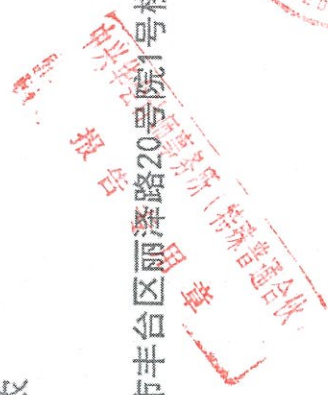 市丰台区丽泽路20号院1号楼
中兴华会计师事务所（特殊普通合伙
报告专用章